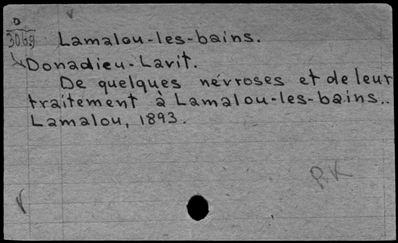 D
3069 Lamalou-les-bains.
Donadieu-Lavit.
De quelques névroses et de leur
traitement à Lamalou-les-bains..
Lamalou, 1893.
P.K